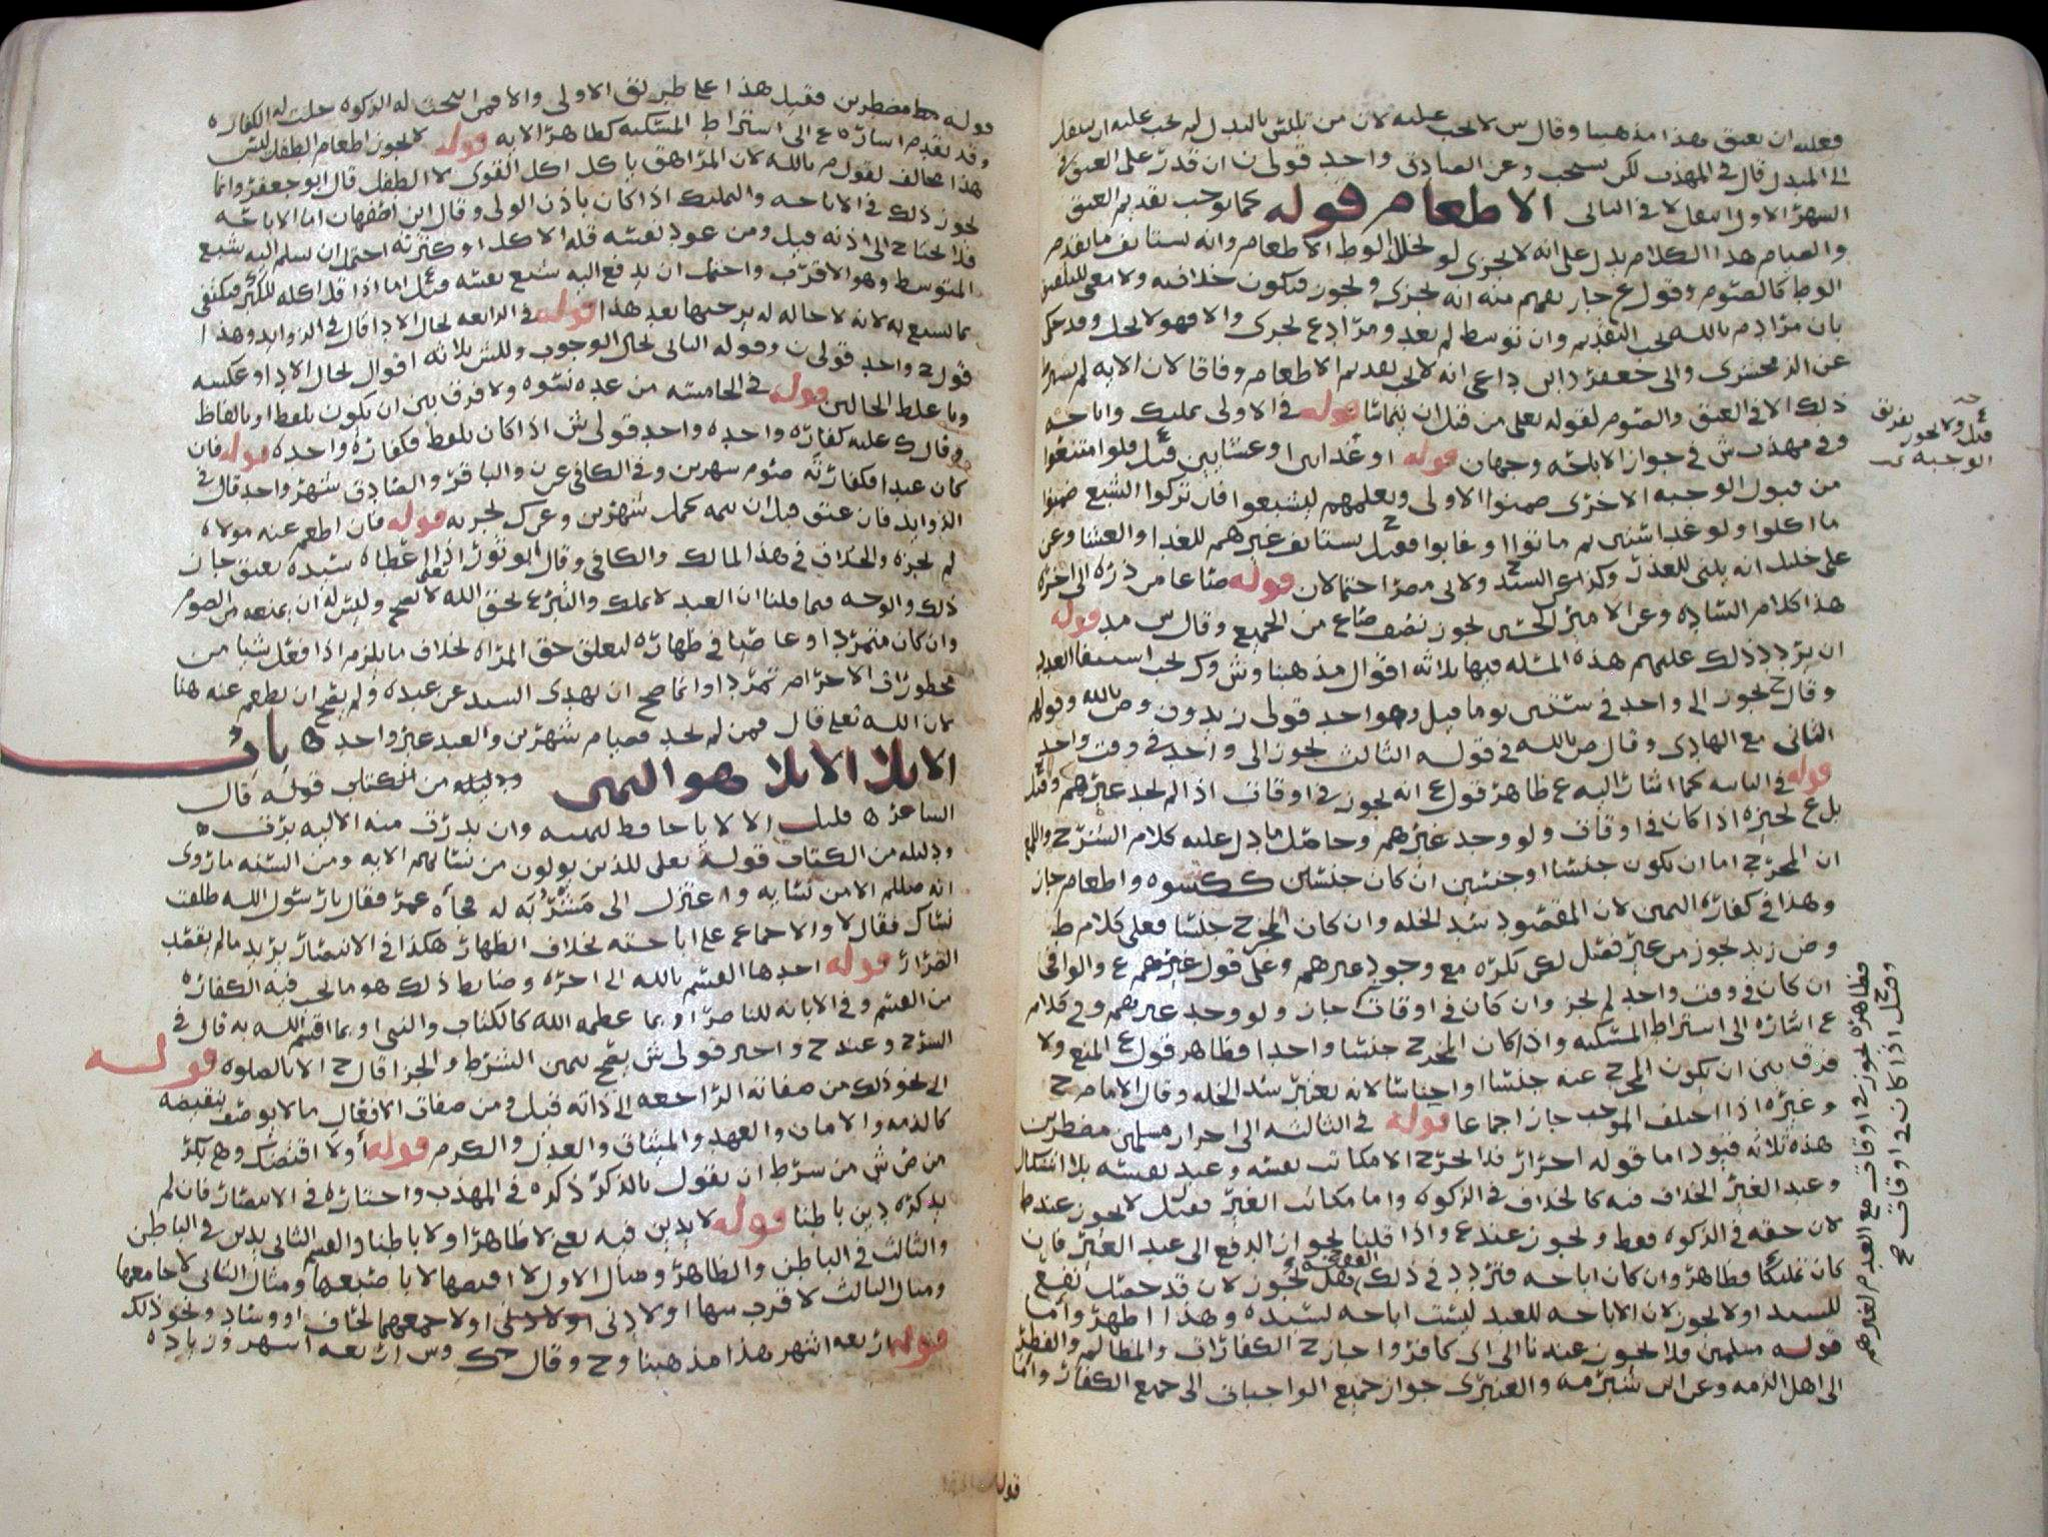 فعليه ان يعتق هذا مذهبنا وقال س لا يجب عليه لان من تلبس بالبدل لم يجب عليه ان ينتقل
الى المبدل قال في المهذب لكن يستحب وعن الصادق واحد قولي ن ان قدر على العتق في
الشهر الاول انتقل لا في الثاني الاطعام قوله كما يوجب تقديم العتق
والصيام هذا الكلام يدل على انه لا يجزى لو تخلل الوطء الاطعام وانه يستانف ما تقدم
الوطء كالصوم وقول ع جاز يفهم منه انه يجزى ويجوز فيكون خلافيه ولا معنى للتلفيق
بان مراد م بالله يجب التقديم وان توسط لم يعد ومراد ع يجزى والا فهو لا يحل وقد حكى
عن الزمخشرى وابى جعفر وابن داعى انه لا يجب تقديم الاطعام وفاقا لان الايه لم تشترط
ذلك الا في العتق والصوم لقوله تعلى من قبل ان يتماسا قوله في الاولى تمليك واباحه
وفي مهذب ش في جواز الاباحه وجهان قوله او غدائين او عشايين قيل فلو امتنعوا
من قبول الوجبه الاخرى ضمنوا الاولى ويعلمهم ليشبعوا فان تركوا الشبع ضمنوا
ما اكلوا ولو غدا ستين ثم ماتوا او غابوا فقيل ح يستانف غيرهم للغدا والعشا وعن
على خليل انه يبنى للعذر وكذا عن السيد ولابى مضر احتمالان قوله صاعا من ذره الى اخره
هذا كلام الساده وعن الامير الحسين يجوز نصف صاع من الجميع وقال س مد قوله
ان يردد ذلك عليهم هذه المسله فيها ثلاثه اقوال مذهبنا وش وك يجب استيفا العدد
وقال ح يجوز الى واحد في ستين يوما قيل وهو احد قولى زيد ون وص بالله وقولهم
الثانى مع الهادى وقال ص بالله في قوله الثالث يجوز الى واحد في وقت واحد
قوله في الثانيه كما اشار اليه ع ظاهر قول ع انه يجوز في اوقات اذا لم يجد غيرهم وقيل
بل ع يجيزه اذا كان في اوقات ولو وجد غيرهم وحاصل ما دل عليه كلام الشرح واللمع
ان المخرج اما ان يكون جنسا او جنسين ان كان جنسين ككسوه واطعام جاز
وهذا في كفارة اليمين لان المقصود سد الخله وان كان المخرج جنسا فعلى كلام ط
وض زيد يجوز من غير فصل لكن يكره مع وجود غيرهم وعلى قول غيرهم ع والوافى
ان كان في وقت واحد لم يجز وان كان في اوقات جاز ولو وجد غيرهم وفي كلام
ع اشاره الى اشتراط المسكنه واذا كان المخرج جنسا واحدا فظاهر قول ع المنع ولا
فرق بين ان يكون المخرج عنه جنسا او اجناسا لانه يعتبر سد الخله وقال الامام ح
وغيره اذا اختلف الموجب جاز اجماعا قوله في الثالثه الى احرار مسلمين مضطرين
هذه ثلاثه قيود اما قوله احرار فلا يخرج الا مكاتب نفسه وعبد نفسه بلا اشكال
وعبد الغير الخلاف فيه كالخلاف في الزكوه واما مكاتب الغير فقيل لا يجوز عند ط
لان حقه في الزكوه فقط ويجوز عند ع واذا قلنا بجواز الدفع الى عبد الغير فان
كان تمليكا فظاهر وان كان اباحه فتردد في ذلك الفقيه ف هل يجوز لان قد حصل نفع
للسيد او لا يجوز لان الاباحه للعبد ليست اباحه لسيده وهذا اظهر واما
قوله مسلمين فلا يجوز عندنا الى اى كافر واجاز ح الكفارات والمظالم والفطر
الى اهل الذمه وعن ابن شبرمه والعنبرى جواز جميع الواجبات الى جميع الكفار واما
قيل ولا يجوز تفريق
الوجبه
وقيل اذا كان في اوقات
فظاهره يجوز في اوقات مع العدم لغيرهم
قوله
قوله مضطرين فقيل هذا على طريق الاولى والا فمن استحب له الزكوه حلت له الكفاره
وقد تقدم اشاره ع الى اشتراط المسكنه كظاهر الايه قوله لا يجوز اطعام الطفل ليس
هذا مخالف لقول م بالله لان المراهق ياكل اكل القوى لا الطفل قال ابو جعفر وانما
يجوز ذلك في الاباحه والتمليك اذا كان باذن الولى وقال ابن اصفهان اما الاباحه
فلا يحتاج الى اذنه قيل ومن عود نفسه قله الاكل او كثرته احتمل ان يسلم اليه شبع
المتوسط وهو الاقرب واحتمل ان يدفع اليه شبع نفسه قيل اما اذا قل اكله للكبر فيكفى
ما يشبع به لانه لا حاله له يرجيها بعد هذا قوله في الرابعه بحال الادا قال في الزوايد وهذا
قول ح واحد قولى ن وقوله الثانى بحال الوجوب وللش ثلاثه اقوال بحال الادا وعكسه
وباغلظ الحالين قوله في الخامسه من عده نسوه ولا فرق بين ان يكون بلفظ او بالفاظ
وقال ك عليه كفاره واحده واحد قولى ش اذا كان بلفظ فكفاره واحده قوله فان
كان عبدا فكفارته صوم شهرين وفي الكافى عن ن والباقر والصادق شهر واحد قال في
الزوايد فان عتق قبل ان يتمه كمل شهرين وعن ك يجزيه قوله فان اطعم عنه مولاه
لم يجزه والخلاف في هذا لمالك والكافى وقال ابو ثور اذا اعطاه سيده يعتق جاز
ذلك والوجه فيما قلنا ان العبد لا يملك والتبرع بحق الله لا يصح وليس له ان يمنعه من الصوم
وان كان متمردا وعاصيا في ظهاره لتعلق حق المراه بخلاف ما يلزم اذا فعل شيا من
محظورات الاحرام تمردا وانما صح ان يهدى السيد عن عبده ولم يصح ان يطعم عنه هنا
لان الله تعلى قال فمن لم يجد فصيام شهرين والعبد غير واجد ه باب
الايلا الايلا هو اليمين ودليله من الكتاب قوله قال
الشاعر ه قليل الالايا حافظ ليمينه وان بدرت منه الاليه برت ه
ودليله من الكتاب قوله تعلى للذين يولون من نسائهم الايه ومن السنه ما روى
انه صللم الا من نسايه واعتزل الى مشربه له فجاه عمر فقال يا رسول الله طلقت
نساك فقال لا والاجماع على اباحته بخلاف الظهار هكذا في الانتصار يريد ما لم يقصد
الضرار قوله احدها القسم بالله الى اخره وضابط ذلك هو ما يجب فيه الكفاره
من القسم وفي الابانه للناصر او بما عظمه الله كالكتاب والنبى او بما اقسم الله به قال في
الشرح وعند ح واخير قولى ش يصح بيمين الشرط والجزا قال ح الا بالصلوه قوله
الى نحو ذلك من صفاته الراجعه الى ذاته قيل ومن صفات الافعال ما لا يوصف بنقيضه
كالذمه والامان والعهد والميثاق والعدل والكرم قوله او لا اقتضك وهي بكر
من ض ش من شرط ان يقول بالذكر ذكره في المهذب واختاره في الانتصار فان لم
يذكره دين باطنا قوله لا يدين فيه يعنى لا ظاهرا ولا باطنا والقسم الثانى يدين في الباطن
والثالث في الباطن والظاهر ومثال الاول لا اقبضها لا باضعها ومثال الثانى لا جامعها
ومثال الثالث لا قرب منها او لا دنى او لا جمعهما لحاف او وساد ونحو ذلك
قوله اربعه اشهر هذا مذهبنا وح وقال ك وس اربعه اشهر وزياده